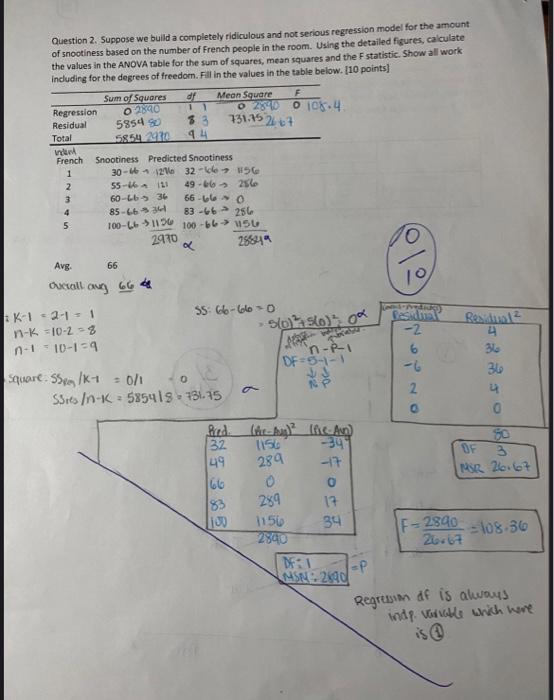 Question 2. Suppose we build a completely ridiculous and not serious regression model for the amount
of snootiness based on the number of French people in the room. Using the detailed figures, calculate
the values in the ANOVA table for the sum of squares, mean squares and the F statistic. Show all work
including for the degrees of freedom. Fill in the values in the table below. [10 points]
Sum of Squares df Mean Square F
Regression 0 2890 1 1 0 2890 0 108.4
Residual 5854 80 8 3 731.75 26.67
Total 5854 2970 9 4
French Snootiness Predicted Snootiness
1 30-66 → 1296 32-66 → 1156
2 55-66 → 121 49-66 → 286
3 60-66 → 36 66-66 → 0
4 85-66 → 361 83-66 → 286
5 100-66 → 1156 100-66 → 1156
2970 2884
10/10
Avg. 66
Overall avg 66
: K-1 = 2-1 = 1
n-K = 10-2 = 8
n-1 = 10-1 = 9
SS: 66-66 = 0
= 5(0)²+5(0)² = 0
n-P-1
DF = 5-1-1
N P
Square: SSreg/K-1 = 0/1 = 0
SSres/n-K = 5854/8 = 731.75
Residual Residual²
-2 4
6 36
-6 36
2 4
0 0
80
DF 3
MSR 26.67
Pred. (Pre-Avg)² (Pre-Avg)
32 1156 -34
49 289 -17
66 0 0
83 289 17
100 1156 34
2890
DF: 1 = P
MSN: 2890
F = 2890/26.67 = 108.36
Regression df is always
indp. variable which here
is 1